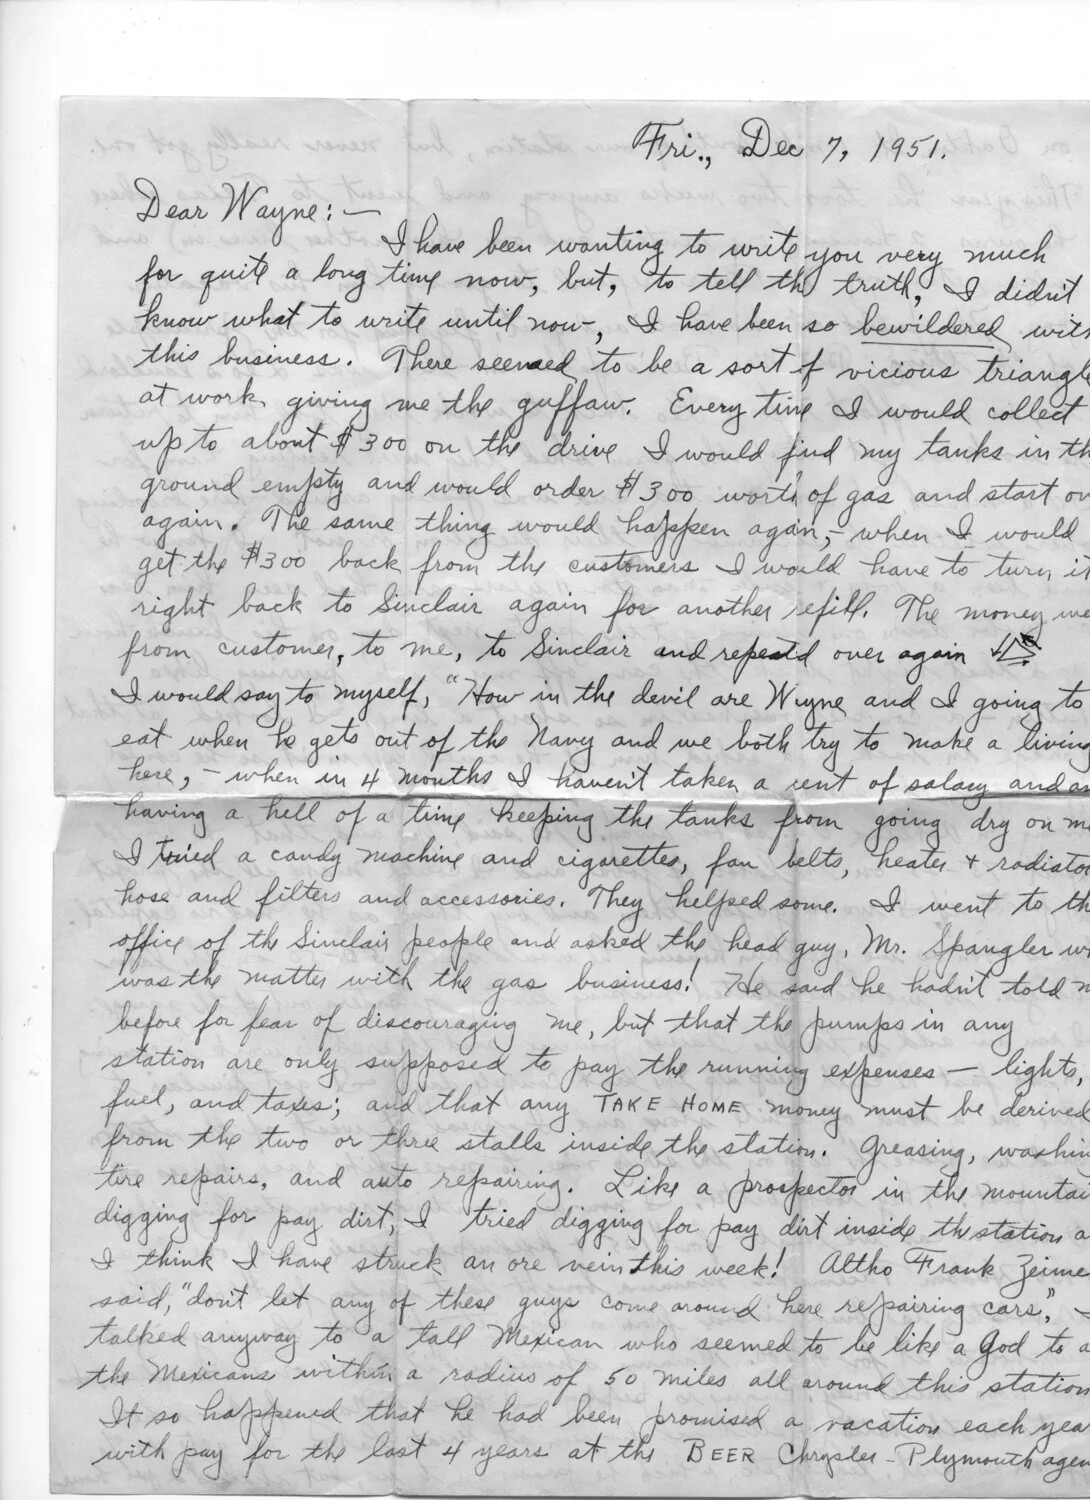 Fri., Dec 7, 1951.
Dear Wayne:—
I have been wanting to write you very much
for quite a long time now, but, to tell the truth, I didn't
know what to write until now, I have been so bewildered with
this business. There seemed to be a sort of vicious triangle
at work giving me the guffaw. Every time I would collect
up to about $300 on the drive I would find my tanks in th
ground empty and would order $300 worth of gas and start ov
again. The same thing would happen again,- when I would
get the $300 back from the customers I would have to turn it
right back to Sinclair again for another refill. The money we
from customer, to me, to Sinclair and repeatd over again
I would say to myself, "How in the devil are Wayne and I going to
eat when he gets out of the Navy and we both try to make a living
here, - when in 4 months I haven't taken a cent of salary and am
having a hell of a time keeping the tanks from going dry on me
I tried a candy machine and cigarettes, fan belts, heater + radiator
hose and filters and accessories. They helped some. I went to th
office of the Sinclair people and asked the head guy, Mr. Spangler w
was the matter with the gas business! He said he hadn't told m
before for fear of discouraging me, but that the pumps in any
station are only supposed to pay the running expenses — lights,
fuel, and taxes; and that any TAKE HOME money must be derived
from the two or three stalls inside the station. Greasing, washin
tire repairs, and auto repairing. Like a prospector in the mountai
digging for pay dirt, I tried digging for pay dirt inside the station a
I think I have struck an ore vein this week! Altho Frank Zeime
said, "don't let any of these guys come around here repairing cars,"
talked anyway to a tall Mexican who seemed to be like a God to a
the Mexicans within a radius of 50 miles all around this station
It so happened that he had been promised a vacation each year
with pay for the last 4 years at the BEER Chrysler-Plymouth agen